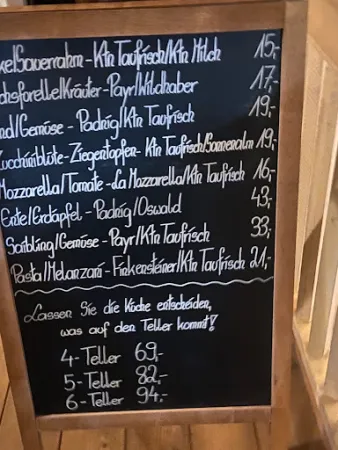 Sauerrahm - Ktn Taufrisch/Ktn Milch 15,-
Kräuter - Payr/Wildhaber 17,-
Gemüse - Padrig/Ktn Taufrisch 19,-
Zucchiniblüte - Ziegentopfen - Ktn Taufrisch/Sonnenalm 19,-
Mozzarella/Tomate - La Mozzarella/Ktn Taufrisch 16,-
Ente/Erdäpfel - Padrig/Oswald 43,-
Saibling/Gemüse - Payr/Ktn Taufrisch 33,-
Pasta/Melanzani - Finkensteiner/Ktn Taufrisch 21,-
Lassen Sie die Küche entscheiden,
was auf den Teller kommt!
4-Teller 69,-
5-Teller 82,-
6-Teller 94,-